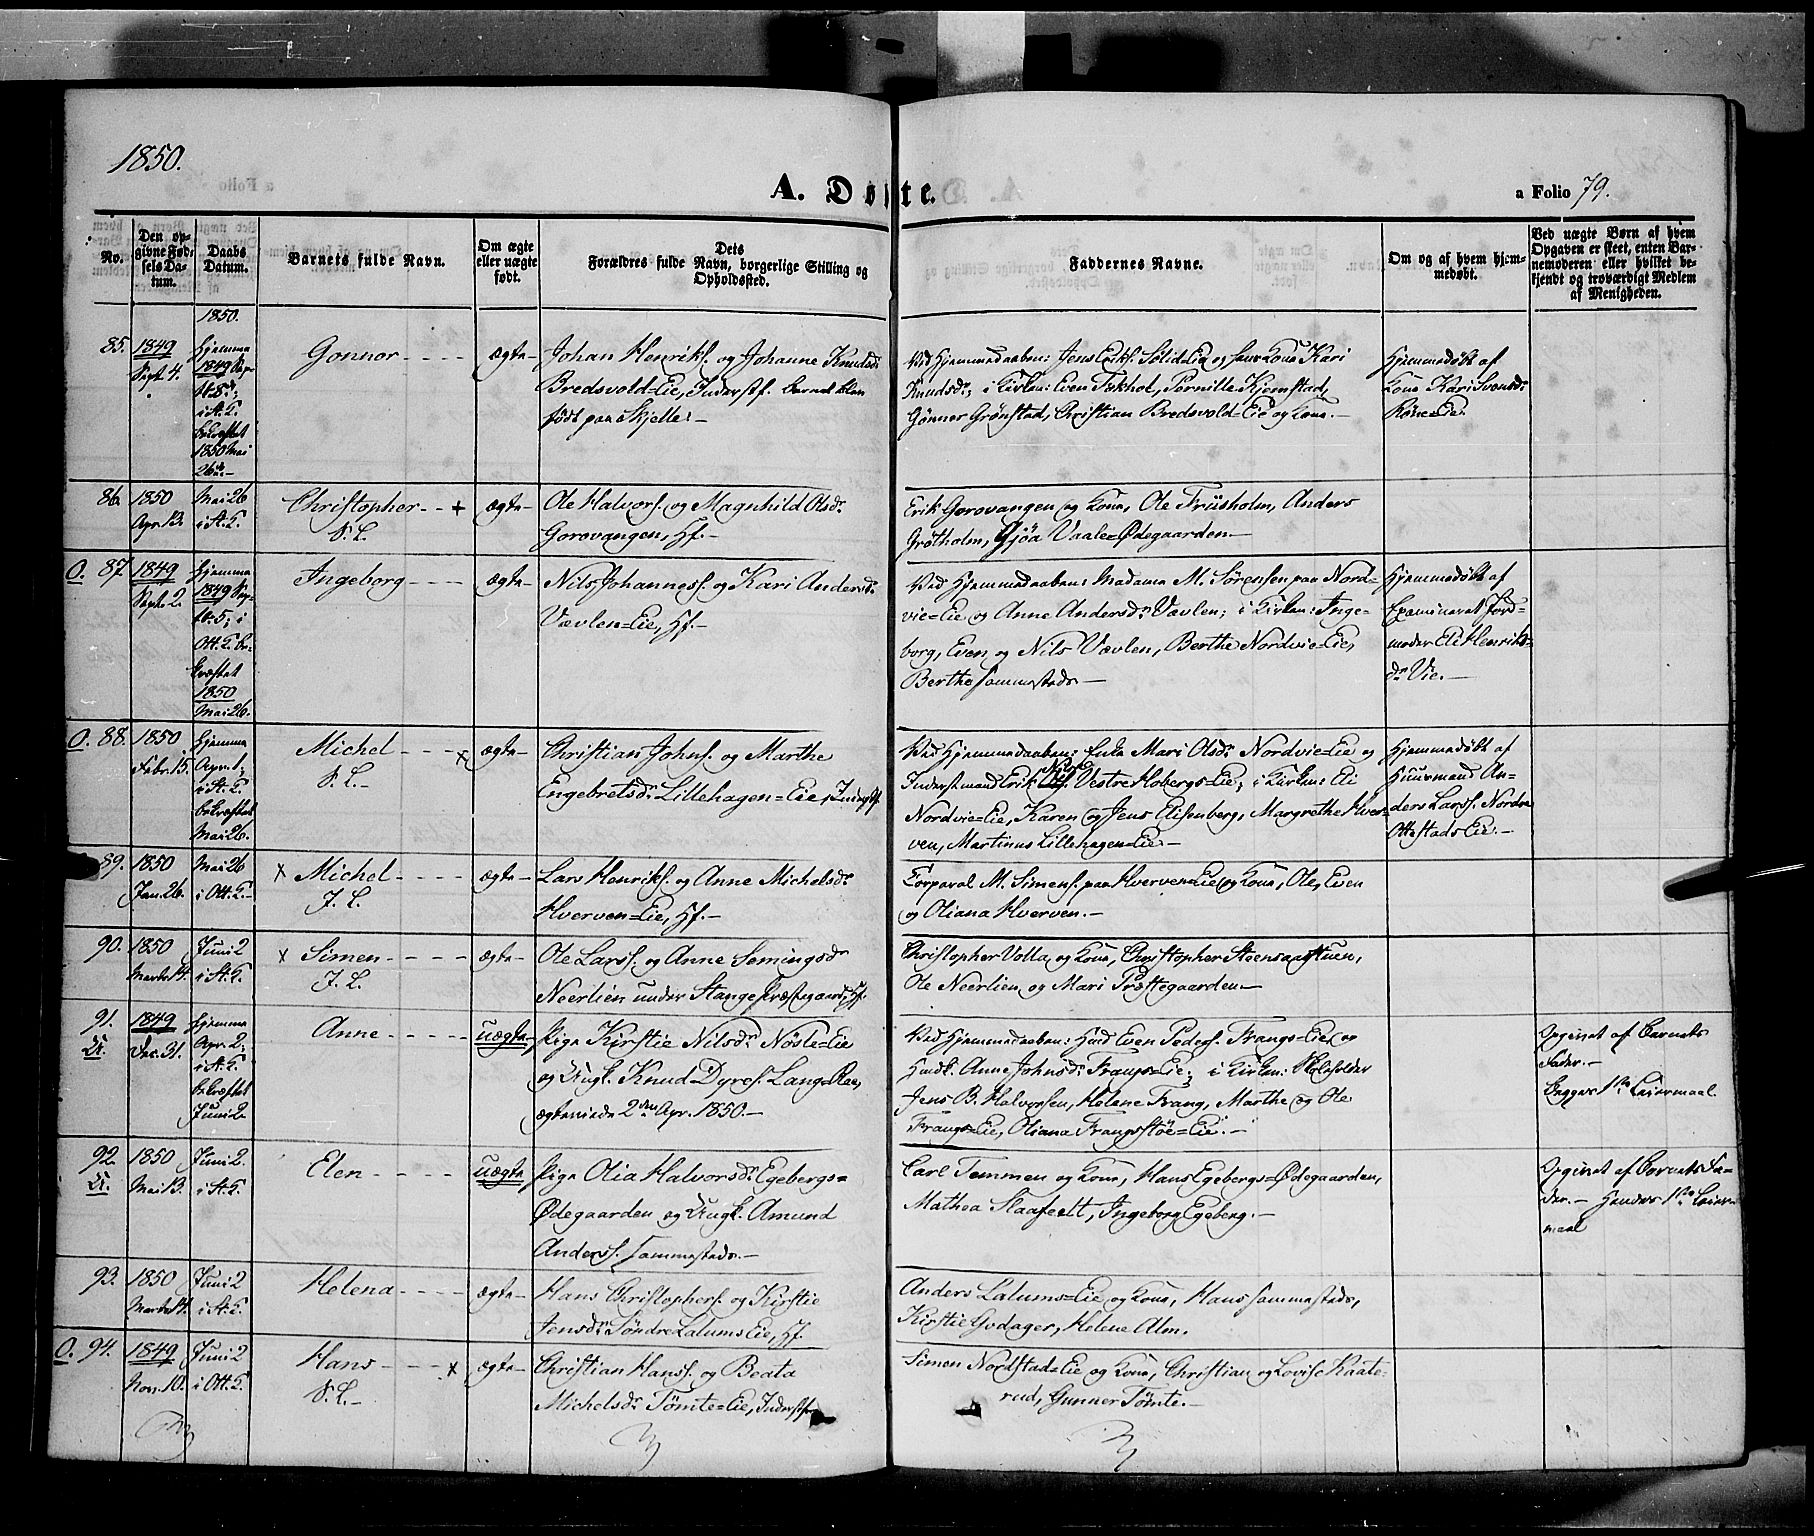 1850.
A. Døbte.
a Folio 79.
No.
Den op-
givne Fød-
sels Da-
tum.
Daabs
Datum.
Barnets fulde Navn.
Om ægte
eller uægte
født.
Dets
Forældres fulde Navn, borgerlige Stilling og
Opholdssted.
Faddernes Navne.
Om og af hvem hjem-
medøbt.
Ved uægte Børn af hvem
Opgaven er skeet, enten Bar-
nemoderen eller hvilket be-
kjendt og troværdigt Medlem
af Menigheden.
1850.
85.
1849
Sept. 4.
Hjemme
1849 Sep-
tb. 8de;
i St. K.
bekræftet
1850 Mai
26de
Gonnor
ægte
Johan Henriks. og Johanne Knudsd.
Bredsvold=Eie, Inderstf. Barnet blev
født paa Skjelle.
Ved Hjemmedaaben: Jens Eriks. Solid=Eie og hans Kone Kari
Knudsd.; i Kirken: Even Fokhol, Pernille Kjemstad,
Gønner Grønstad, Christian Bredsvold=Eie og Kone.
Hjemmedøbt af
Kone Kari Svensd.
Røne=Eie.
86.
1850
Apr. 13.
Mai 26
i St. K.
Christopher +
S. L.
ægte
Ole Halvors. og Magnhild Olsd.
Gorovangen, Hf.
Erik Gorovangen og Kone, Ole Friisholm, Anders
Grøtholm, Gjöa Vaale=Ødegaarden
O. 87
1849
Sept. 2.
Hjemme
1849 Sep-
tb. 5; i
Ott. K. be-
kræftet
1850
Mai 26.
Ingeborg
ægte
Nils Johanness. og Kari Andersd.
Vævlen=Eie, Hf.
Ved Hjemmedaaben: Madame M. Sørensen paa Nord-
vie=Eie og Anne Andersd. Vævlen; i Kirken: Inge-
borg, Even og Nils Vævlen, Berthe Nordvie=Eie,
Berthe sammesteds
Hjemmedøbt af
Examineret Jord-
moder Eli Henriks-
d. Vie.
O. 88.
1850
Febr. 15.
Hjemme
Apr. 1;
i St. K.
bekræftet
Mai 26.
Michel x
S. L.
ægte
Christian Johns. og Marthe
Engebretsd. Lillehagen=Eie, Inderstf.
Ved Hjemmedaaben: Enke Mari Olsd. Nordvie=Eie og
Inderstmand Erik Nils. Vestre Hobergs=Eie; i Kirken: Eli
Nordvie=Eie, Karen og Jens Elisenberg, Margrethe Hver-
ven, Martinus Lillehagen=Eie
Hjemmedøbt af
Huusmand An-
ders Larss. Nordre
Ottestads Eie.
89.
1850
Jan. 26.
Mai 26
i Ott. K.
x Michel
J. L.
ægte
Lars Henriks. og Anne Michelsd.
Hverven=Eie, Hf.
Corporal M. Simens. paa Hverven=Eie og Kone, Ole, Even
og Oliana Hverven.
90.
1850
Marts 14.
Juni 2
i St. K.
x Simen
J. L.
ægte
Ole Larss. og Anne Semingsd.
Neerlien under Stange Præstegaard, Hf.
Christopher Volla og Kone, Christopher Steensaastuen,
Ole Neerlien og Mari Præstegaarden
91.
U.
1849
Dec. 31.
Hjemme
Apr. 2;
i St. K.
bekræftet
Juni 2
Anne
uægte
Pige Kirstie Nilsd. Nøsle=Eie
og Ungk. Knud Dyres. Lang=Ree,
ægteviede 2den Apr. 1850.
Ved Hjemmedaaben: Husm. Even Peders. Frangs=Eie og
Husk. Anne Johnsd. Frangs=Eie; i Kirken: Skoleholder
Jens B. Halvorsen, Helene Frang, Marthe og Ole
Frangs=Eie, Oliana Frangsstøe=Eie.
Opgivet af Barnets
Fader.
Begges 1ste Leiermaal.
92.
U.
1850
Mai 13.
Juni 2.
i St. K.
Elen
uægte
Pige Olia Halvorsd. Egebergs=
Ødegaarden og Ungk. Amund
Anders. sammesteds.
Carl Temmen og Kone, Hans Egebergs=Ødegaarden,
Mathea Staafeelt, Ingeborg Egeberg.
Opgivet af Barnets Fa-
der. Hendes 1ste Leier-
maal
93.
1850
Marts 14.
Juni 2
i St. K.
Helena
ægte
Hans Christophers. og Kirstie
Jensd. Søndre Lalums Eie, Hf.
Anders Lalums=Eie og Kone, Hans sammesteds,
Kirstie Godager, Helene Alm.
O. 94.
1849
Nov. 10.
Juni 2
i Ott. K.
Hans x
S. L.
ægte
Christian Hanss. og Beata
Michelsd. Tömte=Eie, Inderstf.
Simen Nordstad=Eie og Kone, Christian og Lovise Kaate-
rud, Gunner Tömte.